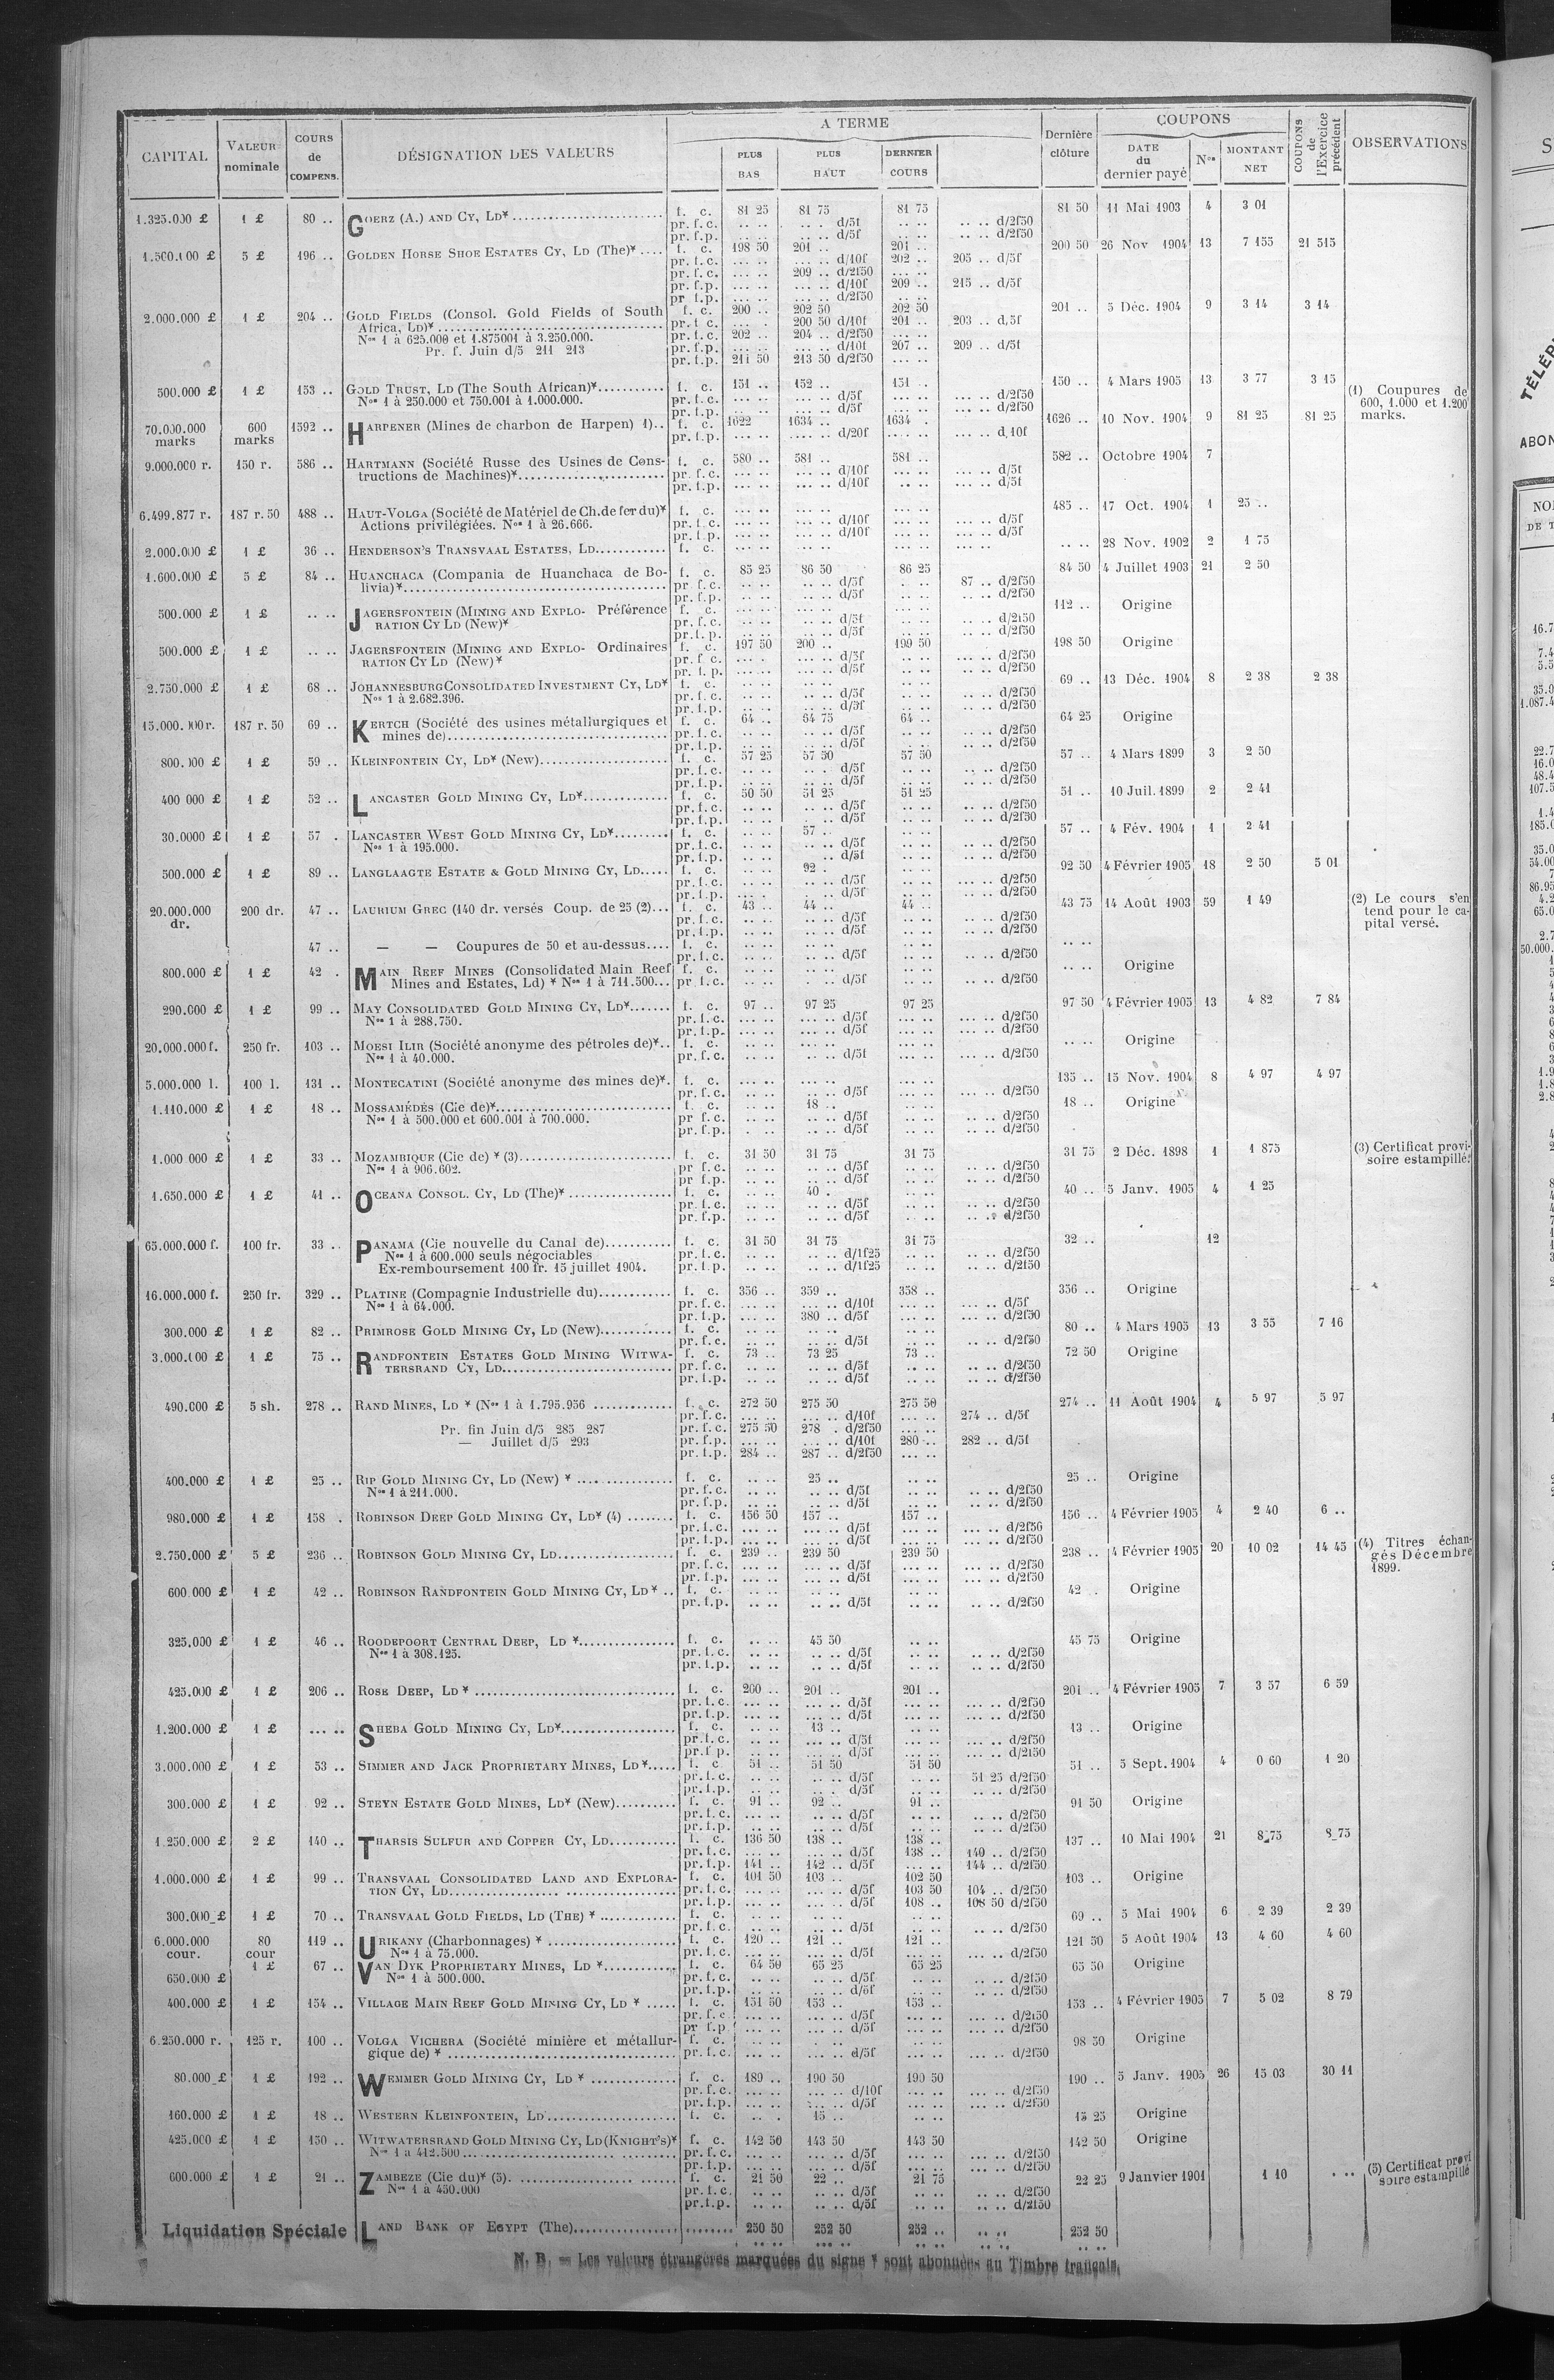 CAPITAL | VALEUR nominale | COURS de COMPENS. | DÉSIGNATION DES VALEURS | A TERME | PLUS BAS | PLUS HAUT | DERNIER COURS | Dernière clôture | COUPONS | DATE du dernier payé | Nos | MONTANT NET | COUPONS de l'Exercice précédent | OBSERVATIONS
1.325.000 £ 1 £ 80 .. GOERZ (A.) AND CY, LD* f. c. 81 25 81 75 81 75 81 50 11 Mai 1903 4 3 01
pr. f. c. .. .. .. . d/5f .. .. .. .. d/2f50
pr. f. p. .. .. .. .. d/5f .. .. .. .. d/2f50
1.500.000 £ 5 £ 196 .. GOLDEN HORSE SHOE ESTATES CY, LD (The)* f. c. 198 50 201 .. 201 .. 200 50 26 Nov 1904 13 7 155 21 515
pr. f. c. ... .. ... .. d/10f 202 .. 205 .. d/5f
pr. f. c. ... .. 209 .. d/2f50 ... ..
pr. f. p. ... .. ... .. d/10f 209 .. 215 .. d/5f
pr f.p. ... .. ... .. d/2f50 .. ..
2.000.000 £ 1 £ 204 .. GOLD FIELDS (Consol. Gold Fields of South f. c. 200 .. 202 50 202 50 201 .. 5 Déc. 1904 9 3 14 3 14
Africa, LD)* pr. f c. ... . 200 50 d/10f 201 .. 203 .. d,5f
Nos 1 à 625.000 et 1.875001 à 3.250.000. pr. f.c. 202 .. 204 .. d/2f50 ... ..
Pr. f. Juin d/5 211 213 pr. f.p. ... .. ... .. d/10f 207 .. 209 .. d/5f
pr. f.p. 211 50 213 50 d/2f50 ... ..
500.000 £ 1 £ 153 .. GOLD TRUST, LD (The South African)* f. c. 151 .. 152 .. 151 .. 150 .. 4 Mars 1905 13 3 77 3 15 (1) Coupures de
Nos 1 à 250.000 et 750.001 à 1.000.000. pr. f.c. ... .. ... .. d/5f ... .. ... .. d/2f50 600, 1.000 et 1.200
pr. f.p. ... .. ... .. d/5f ... .. ... .. d/2f50 marks.
70.000.000 marks 600 marks 1592 .. HARPENER (Mines de charbon de Harpen) 1).. f. c. 1622 1634 .. 1634 . 1626 .. 10 Nov. 1904 9 81 25 81 25
pr. f.p. ... .. ... .. d/20f ... .. ... .. d,10f
9.000.000 r. 150 r. 586 .. HARTMANN (Société Russe des Usines de Cons- f. c. 580 .. 581 .. 581 .. 582 .. Octobre 1904 7
tructions de Machines)* pr. f. c. ... .. ... .. d/10f ... .. ... .. d/5f
pr. f.p. ... .. ... .. d/10f .. .. ... .. d/5f
6.499.877 r. 187 r. 50 488 .. HAUT-VOLGA (Société de Matériel de Ch. de fer du)* f. c. ... .. ... .. ... .. 485 .. 17 Oct. 1904 1 25 ..
Actions privilégiées. Nos 1 à 26.666. pr. f. c. ... .. ... .. d/10f ... .. ... .. d/5f
pr. f.p. ... .. ... .. d/10f ... .. ... .. d/5f
2.000.000 £ 1 £ 36 .. HENDERSON'S TRANSVAAL ESTATES, LD f. c. ... .. .. .. ... .. ... .. .. .. 28 Nov. 1902 2 1 75
1.600.000 £ 5 £ 84 .. HUANCHACA (Compania de Huanchaca de Bo- f. c. 85 25 86 50 86 25 84 50 4 Juillet 1903 21 2 50
livia)* pr. f. c. .. .. .. .. d/5f .. .. 87 .. d/2f50
pr. f.p. .. .. .. .. d/5f .. .. .. .. d/2f50
500.000 £ 1 £ .. .. JAGERSFONTEIN (MINING AND EXPLO- Préférence f. c. ... .. ... .. ... .. 112 .. Origine
RATION CY LD (New)* pr. f.c. .. .. .. .. d/5f .. .. .. .. d/2f50
pr. f. p. .. .. .. .. d/5f .. .. .. .. d/2f50
500.000 £ 1 £ .. .. JAGERSFONTEIN (MINING AND EXPLO- Ordinaires f. c. 197 50 200 .. 199 50 198 50 Origine
RATION CY LD (New)* pr. f. c. ... . .. .. d/5f .. .. ... .. d/2f50
pr. f. p. ... .. .. .. d/5f .. .. ... .. d/2f50
2.750.000 £ 1 £ 68 .. JOHANNESBURG CONSOLIDATED INVESTMENT CY, LD* f. c. .. .. .. .. .. .. 69 .. 13 Déc. 1904 8 2 38 2 38
Nos 1 à 2.682.396. pr. f. c. .. .. .. .. d/5f .. .. .. .. d/2f50
pr. f.p. .. .. .. .. d/5f .. .. .. .. d/2f50
15.000.000r. 187 r. 50 69 .. KERTCH (Société des usines métallurgiques et f. c. 64 .. 64 75 64 .. 64 25 Origine
mines de) pr. f. c. .. .. .. .. d/5f .. .. .. .. d/2f50
pr. f.p. .. .. .. .. d/5f .. .. .. .. d/2f50
800.000 £ 1 £ 59 .. KLEINFONTEIN CY, LD* (New) f. c. 57 25 57 50 57 50 57 .. 4 Mars 1899 3 2 50
pr. f.c. .. .. .. .. d/5f .. .. .. .. d/2f50
pr. f.p. .. .. .. .. d/5f .. .. .. .. d/2f50
400 000 £ 1 £ 52 .. LANCASTER GOLD MINING CY, LD* f. c. 50 50 51 25 51 25 51 .. 10 Juil. 1899 2 2 41
pr. f.c. .. .. .. .. d/5f .. .. .. .. d/2f50
pr. f.p. .. .. .. .. d/5f .. .. .. .. d/2f50
30.0000 £ 1 £ 57 . LANCASTER WEST GOLD MINING CY, LD* f. c. .. .. 57 .. .. .. 57 .. 4 Fév. 1904 1 2 41
Nos 1 à 195.000. pr. f.c. .. .. .. .. d/5f .. .. .. .. d/2f50
pr. f.p. .. .. .. d/5f .. .. .. .. d/2f50
500.000 £ 1 £ 89 .. LANGLAAGTE ESTATE & GOLD MINING CY, LD f. c. .. .. 92 . .. .. 92 50 4 Février 1905 18 2 50 5 01
pr. f.c. .. .. .. .. d/5f .. .. ... .. d/2f50
pr. f.p. ... . .. .. d/5f .. .. ... .. d/2f50
20.000.000 dr. 200 dr. 47 .. LAURIUM GREC (140 dr. versés Coup. de 25 (2) f. c. 43 .. 44 .. 44 .. 43 75 14 Août 1903 59 1 49 (2) Le cours s'en
pr. f.c. .. .. .. .. d/5f .. .. ... .. d/2f50 tend pour le ca-
pr. f.p. .. .. .. .. d/5f .. .. .. .. d/2f50 pital versé.
47 .. — — Coupures de 50 et au-dessus f. c. .. .. .. .. .. .. .. ..
pr. f.c. .. .. .. .. d/5f .. .. .. .. d/2f50
800.000 £ 1 £ 42 . MAIN REEF MINES (Consolidated Main Reef f. c. .. .. .. .. .. .. .. .. Origine
Mines and Estates, Ld) * Nos 1 à 711.500 pr f.c. .. .. . .. d/5f .. .. .. .. d/2f50
290.000 £ 1 £ 99 .. MAY CONSOLIDATED GOLD MINING CY, LD* f. c. 97 .. 97 25 97 25 97 50 4 Février 1905 13 4 82 7 84
Nos 1 à 288.750. pr. f.c. ... .. ... .. d/5f ... .. ... .. d/2f50
pr. f.p. ... .. ... .. d/5f ... .. ... .. d/2f50
20.000.000 f. 250 fr. 103 .. MOESI ILIR (Société anonyme des pétroles de)* f. c. .. .. ... .. ... .. .. .. Origine
Nos 1 à 40.000. pr. f. c. .. .. ... .. d/5f ... .. ... .. d/2f50
5.000.000 l. 100 l. 131 .. MONTECATINI (Société anonyme des mines de)* f. c. ... .. ... .. ... .. 135 .. 15 Nov. 1904 8 4 97 4 97
pr. f.c. .. .. .. .. d/5f .. .. ... .. d/2f50
1.110.000 £ 1 £ 18 .. MOSSAMÉDÈS (Cie de)* f. c. .. .. 18 .. .. .. 18 .. Origine
Nos 1 à 500.000 et 600.001 à 700.000. pr f.c. .. .. .. .. d/5f .. .. .. .. d/2f50
pr. f.p. . .. .. .. d/5f .. .. .. .. d/2f50
1.000 000 £ 1 £ 33 .. MOZAMBIQUE (Cie de) * (3) f. c. 31 50 31 75 31 75 31 75 2 Déc. 1898 1 1 875 (3) Certificat provi-
Nos 1 à 906.602. pr f.c. .. .. .. .. d/5f .. .. .. .. d/2f50 soire estampillé.
pr f.p. .. .. .. .. d/5f .. .. .. .. d/2f50
1.650.000 £ 1 £ 41 .. OCEANA CONSOL. CY, LD (The)* f. c. .. .. 40 . .. .. 40 .. 5 Janv. 1905 4 1 25
pr. f.c. .. .. .. .. d/5f .. .. .. .. d/2f50
pr. f.p. .. .. .. .. d/5f .. .. .. .. d/2f50
65.000.000 f. 100 fr. 33 .. PANAMA (Cie nouvelle du Canal de) f. c. 31 50 31 75 31 75 32 .. 12
Nos 1 à 600.000 seuls négociables pr. f.c. .. .. .. .. d/1f25 .. .. .. .. d/2f50
Ex-remboursement 100 fr. 15 juillet 1904. pr. f.p. .. .. .. .. d/1f25 .. .. .. .. d/2f50
16.000.000 f. 250 fr. 329 .. PLATINE (Compagnie Industrielle du) f. c. 356 .. 359 .. 358 .. 356 .. Origine
Nos 1 à 64.000. pr. f. c. ... .. ... .. d/10f ... .. ... .. d/5f
pr. f.p. ... .. 380 .. d/5f ... .. ... .. d/2f50
300.000 £ 1 £ 82 .. PRIMROSE GOLD MINING CY, LD (New) f. c. .. .. .. .. .. .. 80 .. 4 Mars 1905 13 3 55 7 16
pr. f.c. .. .. .. .. d/5f .. .. ... .. d/2f50
3.000.000 £ 1 £ 75 .. RANDFONTEIN ESTATES GOLD MINING WITWA- f. c. 73 .. 73 25 73 .. 72 50 Origine
TERSRAND CY, LD pr. f. c. .. .. .. .. d/5f .. .. .. .. d/2f50
pr. f.p. .. .. .. .. d/5f .. .. .. .. d/2f50
490.000 £ 5 sh. 278 .. RAND MINES, LD * (Nos 1 à 1.795.956 f. c. 272 50 275 50 275 50 274 .. 11 Août 1904 4 5 97 5 97
pr. f.c. ... .. ... .. d/10f ... .. 274 .. d/5f
Pr. fin Juin d/5 285 287 pr. f.c. 275 50 278 . d/2f50 ... ..
— Juillet d/5 293 pr. f.p. ... .. ... .. d/10f 280 .. 282 .. d/5f
pr. f.p. 284 .. 287 .. d/2f50 ... ..
400.000 £ 1 £ 25 .. RIP GOLD MINING CY, LD (New) * f. c. .. .. 25 .. .. .. 25 .. Origine
Nos 1 à 211.000. pr. f.c. .. .. .. .. d/5f .. .. .. .. d/2f50
pr. f.p. .. .. .. .. d/5f .. .. .. .. d/2f50
980.000 £ 1 £ 158 . ROBINSON DEEP GOLD MINING CY, LD* (4) f. c. 156 50 157 .. 157 .. 156 .. 4 Février 1905 4 2 40 6 ..
pr. f.c. ... .. ... .. d/5f ... .. ... .. d/2f50
pr. f.p. ... .. ... .. d/5f ... .. ... .. d/2f50
2.750.000 £ 5 £ 236 .. ROBINSON GOLD MINING CY, LD f. c. 239 .. 239 50 239 50 238 .. 4 Février 1905 20 10 02 14 45 (4) Titres échan-
pr. f.c. ... .. ... .. d/5f ... .. ... .. d/2f50 gés Décembre
pr. f.p. ... .. ... .. d/5f ... .. ... .. d/2f50 1899.
600.000 £ 1 £ 42 .. ROBINSON RANDFONTEIN GOLD MINING CY, LD * f. c. .. .. .. .. .. .. 42 .. Origine
pr. f.p. .. .. .. .. d/5f .. .. .. .. d/2f50
325.000 £ 1 £ 46 .. ROODEPOORT CENTRAL DEEP, LD * f. c. .. .. 45 50 .. .. 45 75 Origine
Nos 1 à 308.125. pr. f.c. .. .. .. .. d/5f .. .. .. .. d/2f50
pr. f.p. .. .. .. .. d/5f .. .. .. .. d/2f50
425.000 £ 1 £ 206 .. ROSE DEEP, LD * f. c. 200 .. 201 .. 201 .. 201 .. 4 Février 1905 7 3 57 6 59
pr. f.c. ... .. ... .. d/5f ... .. ... .. d/2f50
pr. f.p. ... .. ... .. d/5f ... .. ... .. d/2f50
1.200.000 £ 1 £ ... .. SHEBA GOLD MINING CY, LD* f. c. .. .. 13 .. .. .. 13 .. Origine
pr. f.c. .. .. ... .. d/5f .. .. ... .. d/2f50
pr. f.p. .. .. ... .. d/5f .. .. ... .. d/2f50
3.000.000 £ 1 £ 53 .. SIMMER AND JACK PROPRIETARY MINES, LD * f. c 51 .. 51 50 51 50 51 .. 5 Sept. 1904 4 0 60 1 20
pr. f.c. .. .. .. .. d/5f .. .. 51 25 d/2f50
pr. f.p. .. .. .. . d/5f .. .. .. .. d/2f50
300.000 £ 1 £ 92 .. STEYN ESTATE GOLD MINES, LD* (New) f. c. 91 .. 92 .. 91 .. 91 50 Origine
pr. f.c. ... .. .. .. d/5f .. .. .. .. d/2f50
pr. f.p. ... .. .. .. d/5f .. .. .. .. d/2f50
1.250.000 £ 2 £ 140 .. THARSIS SULFUR AND COPPER CY, LD f. c. 136 50 138 .. 138 .. 137 .. 10 Mai 1904 21 8 75 8 75
pr. f.c. ... .. ... .. d/5f 138 .. 140 .. d/2f50
pr. f.p. 141 .. 142 .. d/5f ... .. 144 .. d/2f50
1.000.000 £ 1 £ 99 .. TRANSVAAL CONSOLIDATED LAND AND EXPLORA- f. c. 101 50 103 .. 102 50 103 .. Origine
TION CY, LD pr. f.c. ... .. ... .. d/5f 103 50 104 .. d/2f50
pr. f.p. ... .. ... .. d/5f 108 .. 108 50 d/2f50
300.000 £ 1 £ 70 .. TRANSVAAL GOLD FIELDS, LD (THE) * f. c. .. .. .. .. .. .. 69 .. 5 Mai 1904 6 2 39 2 39
pr. f.c. .. .. .. .. d/5f .. .. .. .. d/2f50
6.000.000 cour. 80 cour 119 .. URIKANY (Charbonnages) * f. c. 120 .. 121 .. 121 .. 121 50 5 Août 1904 13 4 60 4 60
Nos 1 à 75.000. pr. f.c. ... .. ... .. d/5f ... .. ... .. d/2f50
650.000 £ 1 £ 67 .. VAN DYK PROPRIETARY MINES, LD * f. c. 64 50 65 25 65 25 65 50 Origine
Nos 1 à 500.000. pr. f.c. .. .. .. .. d/5f .. .. .. .. d/2f50
pr. f.p. .. .. .. .. d/5f .. .. .. .. d/2f50
400.000 £ 1 £ 154 .. VILLAGE MAIN REEF GOLD MINING CY, LD * f. c. 151 50 153 .. 153 .. 153 .. 4 Février 1905 7 5 02 8 79
pr. f.c ... .. ... .. d/5f ... .. .. .. d/2f50
pr f.p ... .. ... .. d/5f ... .. .. .. d/2f50
6.250.000 r. 125 r. 100 .. VOLGA VICHERA (Société minière et métallur- f. c. .. .. .. .. .. .. 98 50 Origine
gique de) * pr. f.c. ... .. ... .. d/5f ... .. ... .. d/2f50
80.000 £ 1 £ 192 .. WEMMER GOLD MINING CY, LD * f. c. 189 .. 190 50 190 50 190 .. 5 Janv. 1905 26 15 03 30 11
pr. f.c. ... .. ... .. d/10f ... .. ... .. d/2f50
pr. f.p. ... .. ... .. d/5f ... .. ... .. d/2f50
160.000 £ 1 £ 18 .. WESTERN KLEINFONTEIN, LD f. c. .. . 15 .. .. .. 15 25 Origine
425.000 £ 1 £ 150 .. WITWATERSRAND GOLD MINING CY, LD (KNIGHT'S)* f. c. 142 50 143 50 143 50 142 50 Origine
Nos 1 à 412.500 pr. f.c. ... .. ... .. d/5f ... .. ... .. d/2f50
pr. f.p. ... .. ... .. d/5f ... .. ... .. d/2f50
600.000 £ 1 £ 21 .. ZAMBEZE (Cie du)* (5). f. c. 21 50 22 .. 21 75 22 25 9 Janvier 1901 1 10 .. .. (5) Certificat provi
Nos 1 à 450.000 pr. f.c. .. .. .. .. d/5f .. .. .. .. d/2f50 soire estampillé
pr. f.p. .. .. .. .. d/5f .. .. .. .. d/2f50
Liquidation Spéciale LAND BANK OF EGYPT (The) 250 50 252 50 252 .. .. .. 252 50
N. B. = Les valeurs étrangères marquées du signe * sont abonnées au Timbre français.
TÉLÉP
ABON
NO
DE T